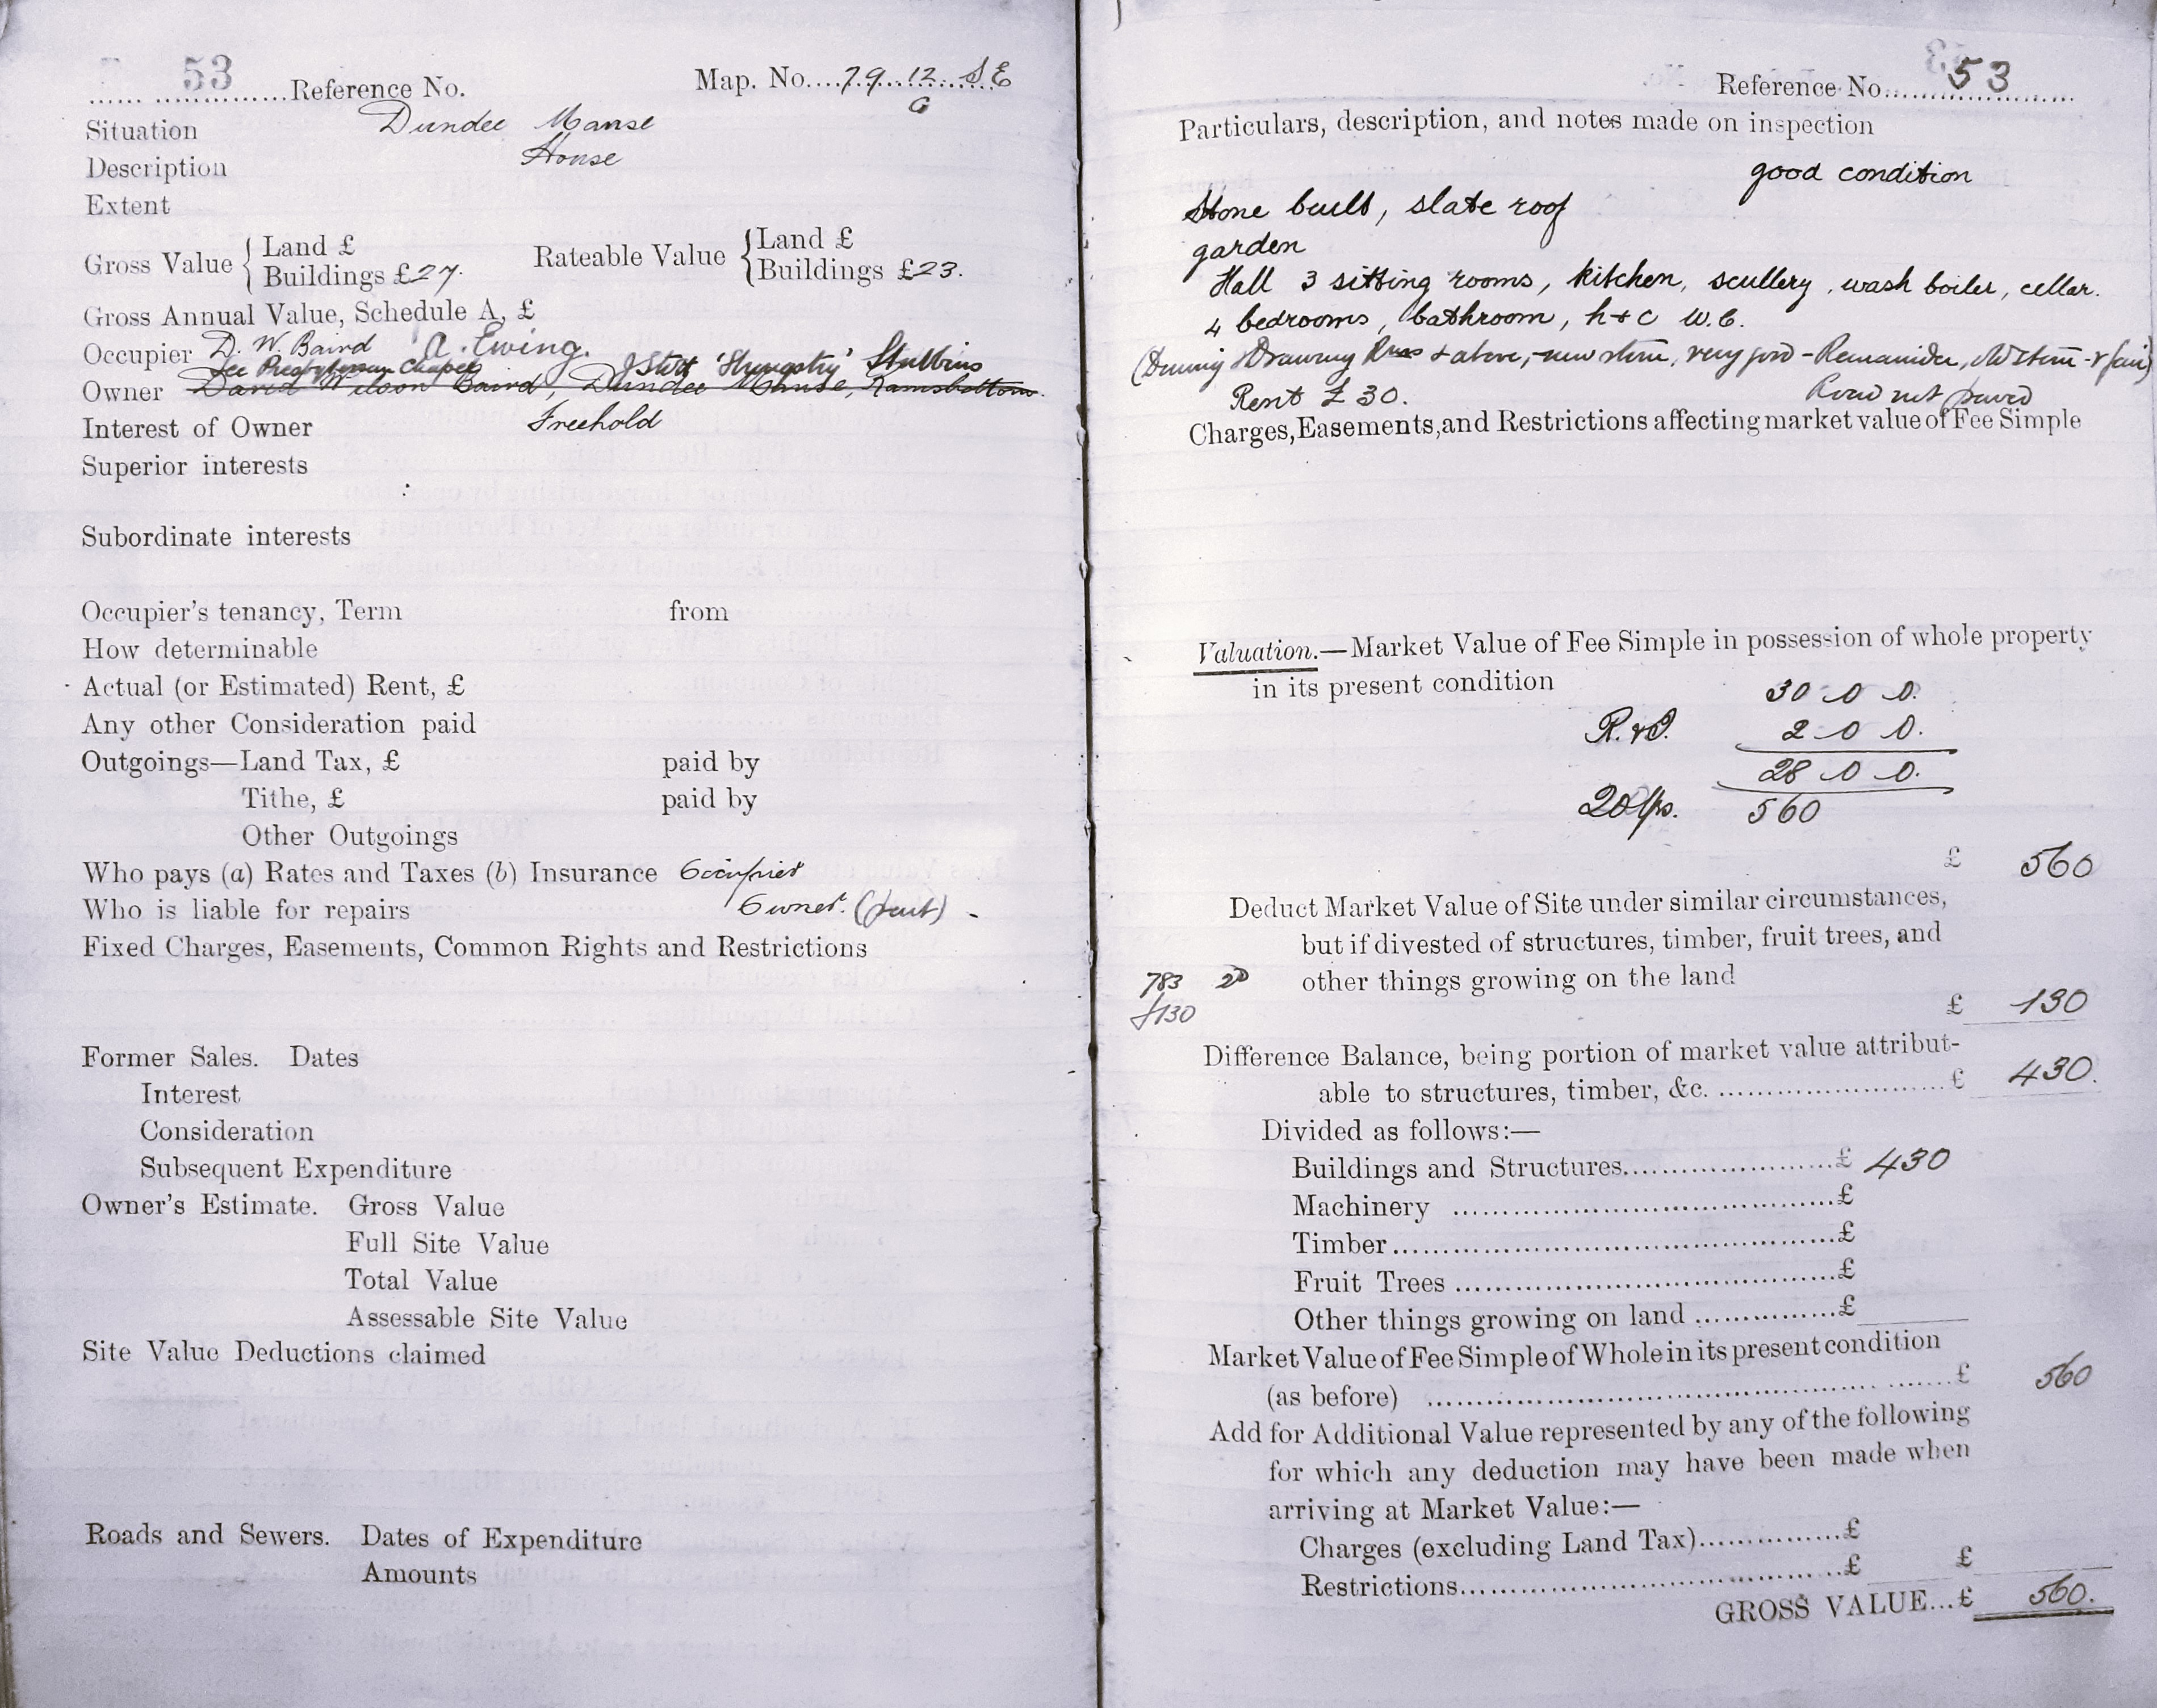 53 Reference No. Map. No. 79. 12. S.E
a
Situation Dundee Manse
Description House
Extent
Gross Value { Land £ Rateable Value { Land £
Buildings £27. Buildings £23.
Gross Annual Value, Schedule A, £
Occupier D. W. Baird A. Ewing.
See Presbyterian Chapel J Stott Stubbins
Owner David Wilson Baird, Dundee Manse, Ramsbottom.
Interest of Owner Freehold
Superior interests
Subordinate interests
Occupier's tenancy, Term from
How determinable
Actual (or Estimated) Rent, £
Any other Consideration paid
Outgoings—Land Tax, £ paid by
Tithe, £ paid by
Other Outgoings
Who pays (a) Rates and Taxes (b) Insurance Occupier
Who is liable for repairs Owner.
Fixed Charges, Easements, Common Rights and Restrictions
Former Sales. Dates
Interest
Consideration
Subsequent Expenditure
Owner's Estimate. Gross Value
Full Site Value
Total Value
Assessable Site Value
Site Value Deductions claimed
Roads and Sewers. Dates of Expenditure
Amounts
Reference No. 53
Particulars, description, and notes made on inspection
good condition
Stone built, slate roof
garden
Hall 3 sitting rooms, kitchen, scullery, wash boiler, cellar.
4 bedrooms, bathroom, h+c W.C.
(Dining & Drawing Rms & above, new stone, very good - Remainder, old stone - & fair)
Rent £30. Road not paved
Charges, Easements, and Restrictions affecting market value of Fee Simple
Valuation.—Market Value of Fee Simple in possession of whole property
in its present condition
30 0 0.
R. & I. 2 0 0.
28 0 0.
20 Yps. 560
£ 560
Deduct Market Value of Site under similar circumstances,
but if divested of structures, timber, fruit trees, and
783 other things growing on the land
£130 £ 130
Difference Balance, being portion of market value attribut-
able to structures, timber, &c. £ 430.
Divided as follows:—
Buildings and Structures £ 430
Machinery £
Timber £
Fruit Trees £
Other things growing on land £
Market Value of Fee Simple of Whole in its present condition
(as before) £ 560
Add for Additional Value represented by any of the following
for which any deduction may have been made when
arriving at Market Value:—
Charges (excluding Land Tax) £
Restrictions £ £
GROSS VALUE...£ 560.